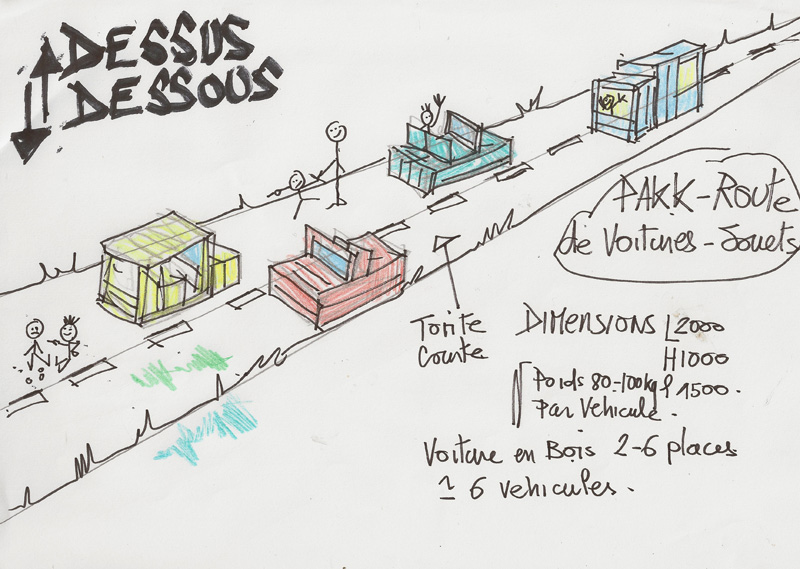 DESSUS
DESSOUS
PARK-ROUTE
de Voitures-Jouets
DIMENSIONS L2000
H1000
l 1500.
Poids 80-100kg
Par Vehicule.
Voiture en Bois 2-6 places
6 vehicules.